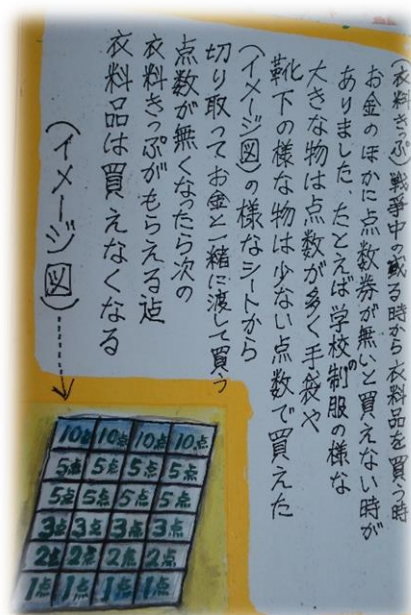 (衣料きっぷ)戦争中の或る時から衣料品を買う時
お金のほかに点数券が無いと買えない時が
ありました たとえば学校の制服の様な
大きな物は点数が多く手袋や
靴下の様な物は少ない点数で買えた
(イメージ図)の様なシートから
切り取ってお金と一緒に渡して買う
点数が無くなったら次の
衣料きっぷがもらえる迠
衣料品は買えなくなる
(イメージ図)
10点 10点 10点 10点
5点 5点 5点 5点
5点 5点 5点 5点
3点 3点 3点 3点
2点 2点 2点 2点
1点 1点 1点 1点